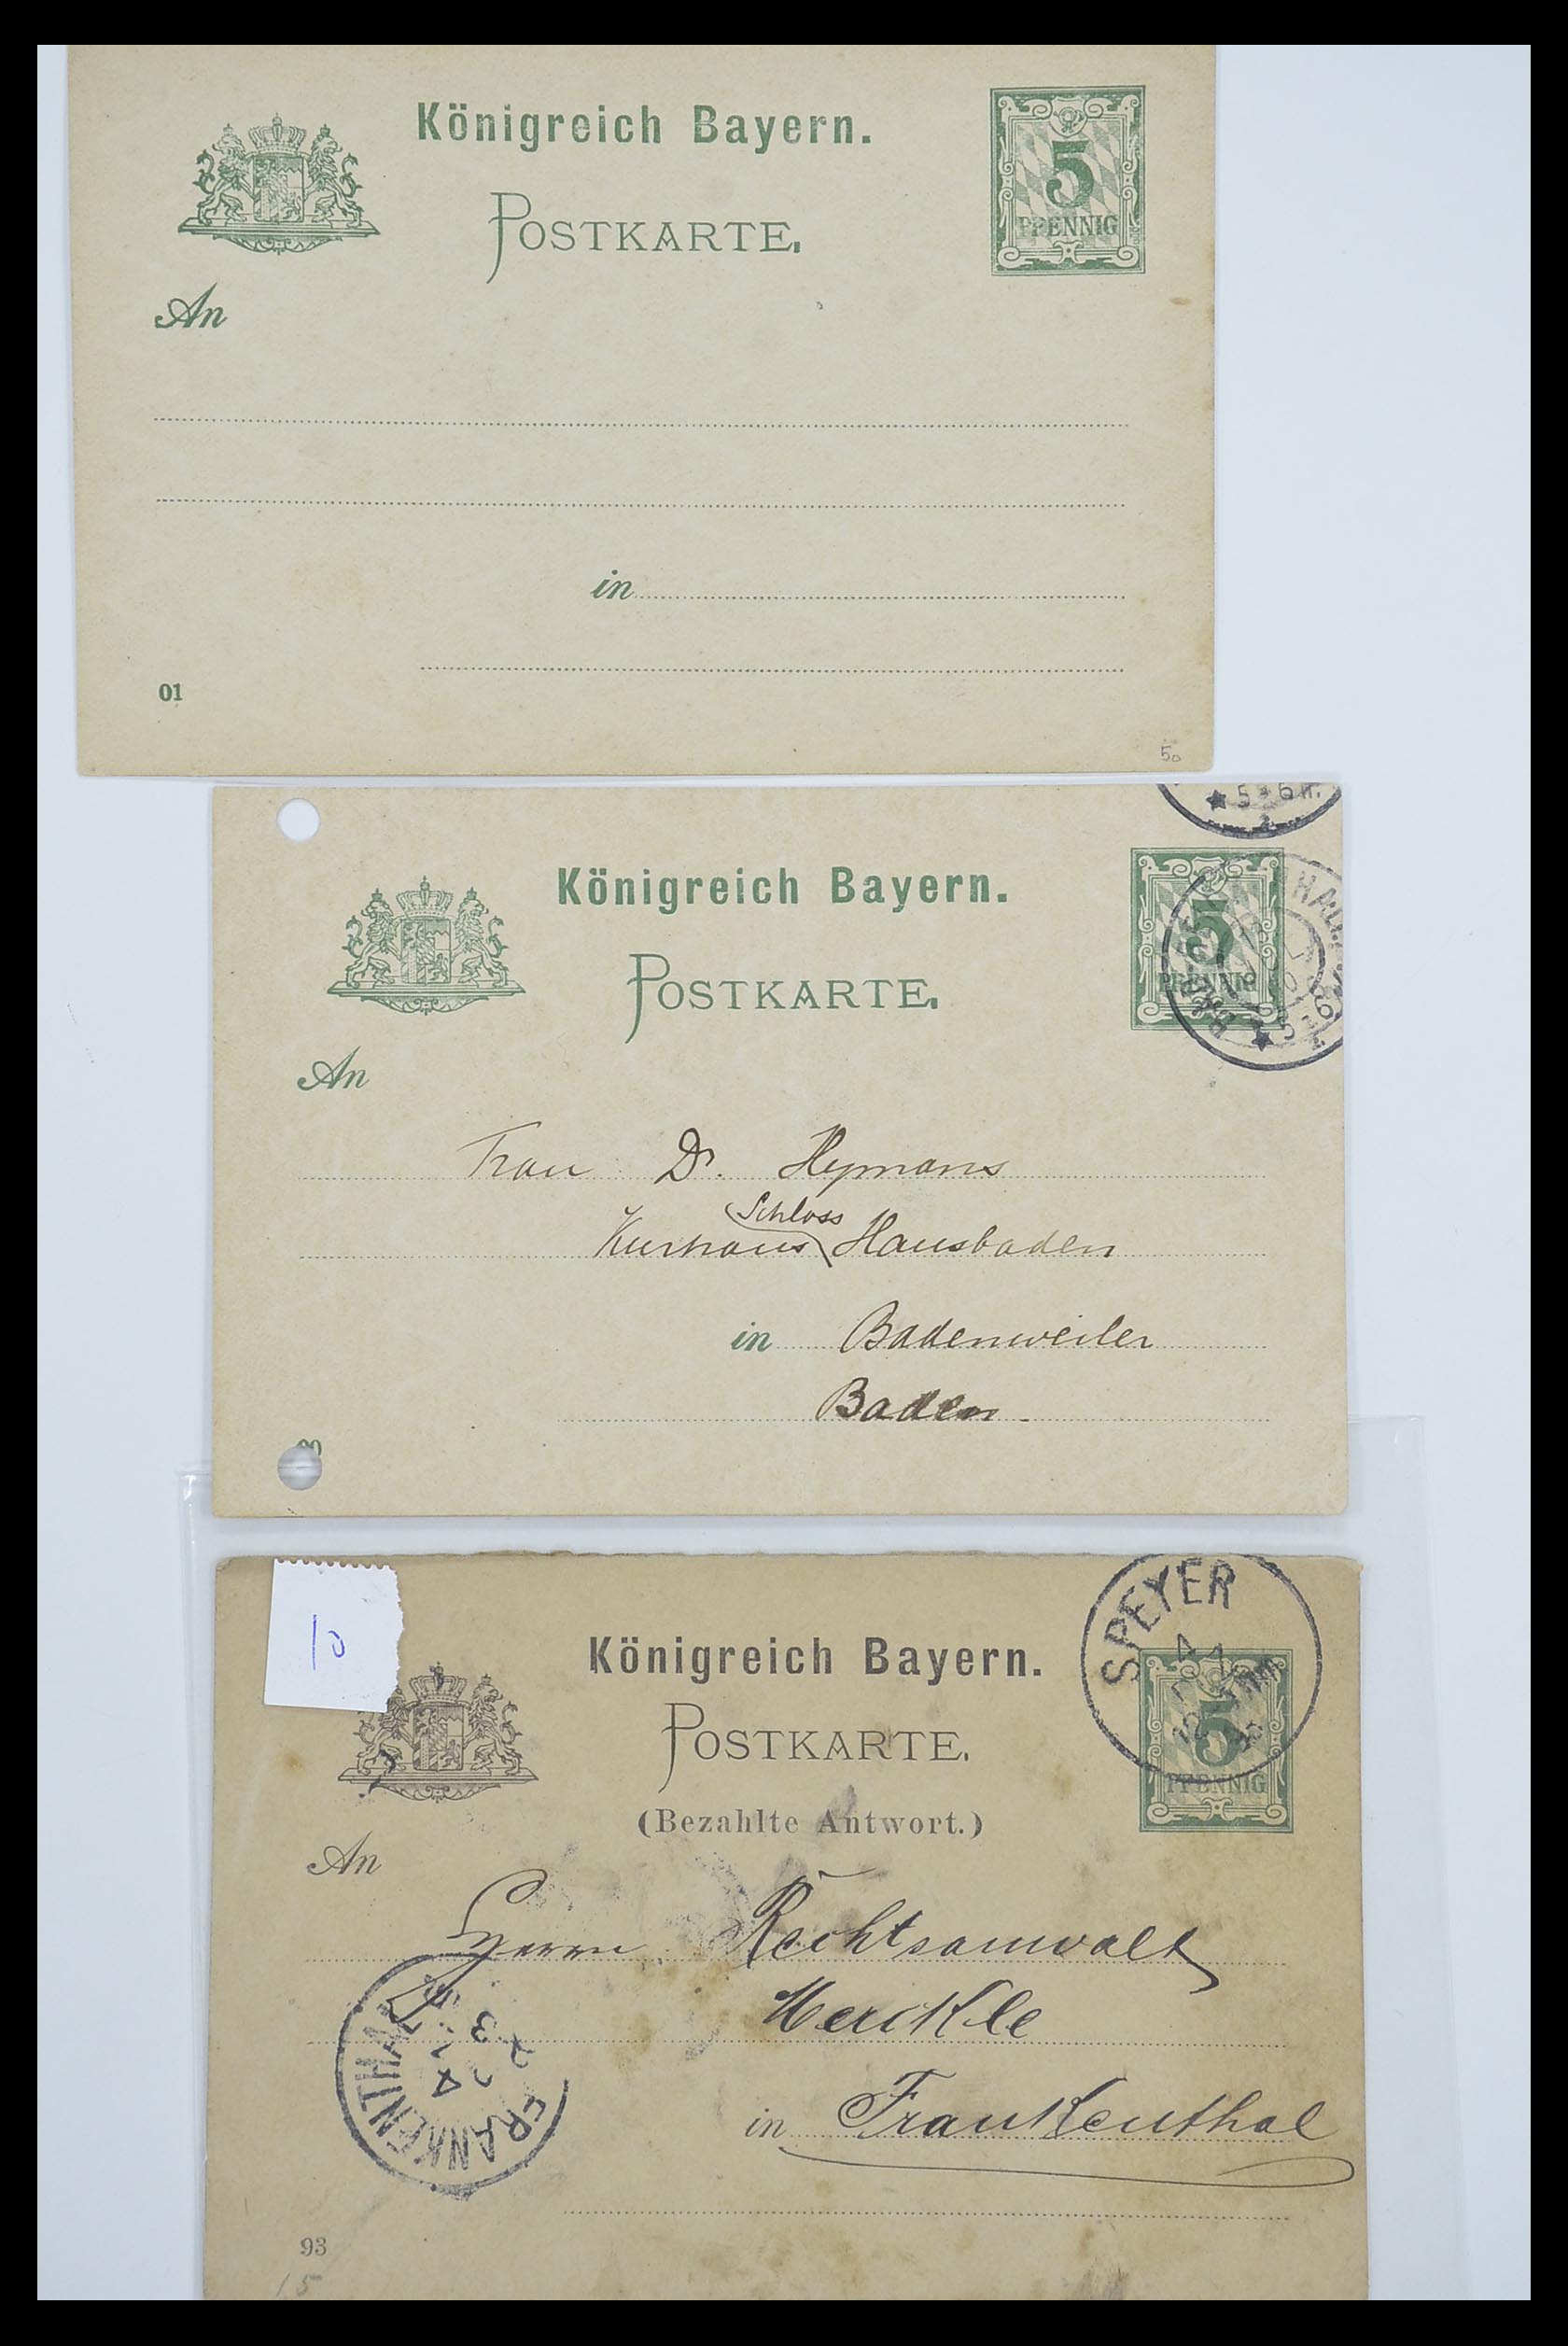 Königreich Bayern.
POSTKARTE.
5
PFENNIG
An
in
01
50
5-6 n.
Königreich Bayern.
POSTKARTE.
5
PFENNIG
An
Frau Dr. Hymans
Schloss
Kurhaus Hausbaden
in Badenweiler
Baden
10
SPEYER
Königreich Bayern.
POSTKARTE.
5
PFENNIG
(Bezahlte Antwort.)
An
Herrn Rechtsanwalt
Merckle
in Frankenthal
FRANKENTHAL
93
15